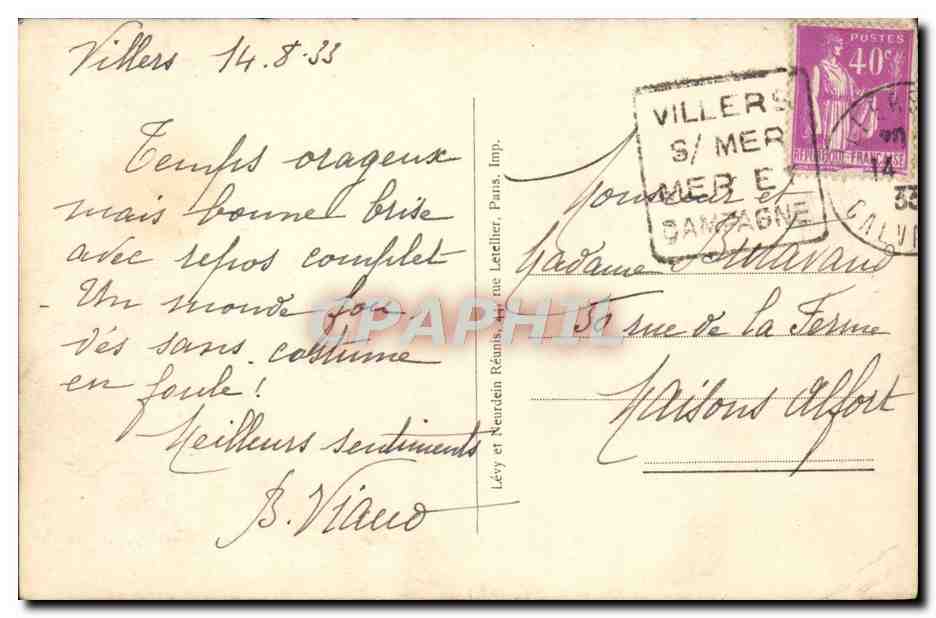 Villers 14.8.33
Temps orageux
mais bonne brise
avec repos complet
- Un monde fou.
des sans costume
en foule!
Meilleurs sentiments
B. Viaud
Lévy et Neurdein Réunis, 44, rue Letellier, Paris, Imp.
POSTES
40c
RÉPUBLIQUE FRANÇAISE
VILLERS
S/ MER
MER E
CAMPAGNE
14
33
CALV
Monsieur et
Madame
rue de la Ferme
Maisons Alfort
CPAPHIL